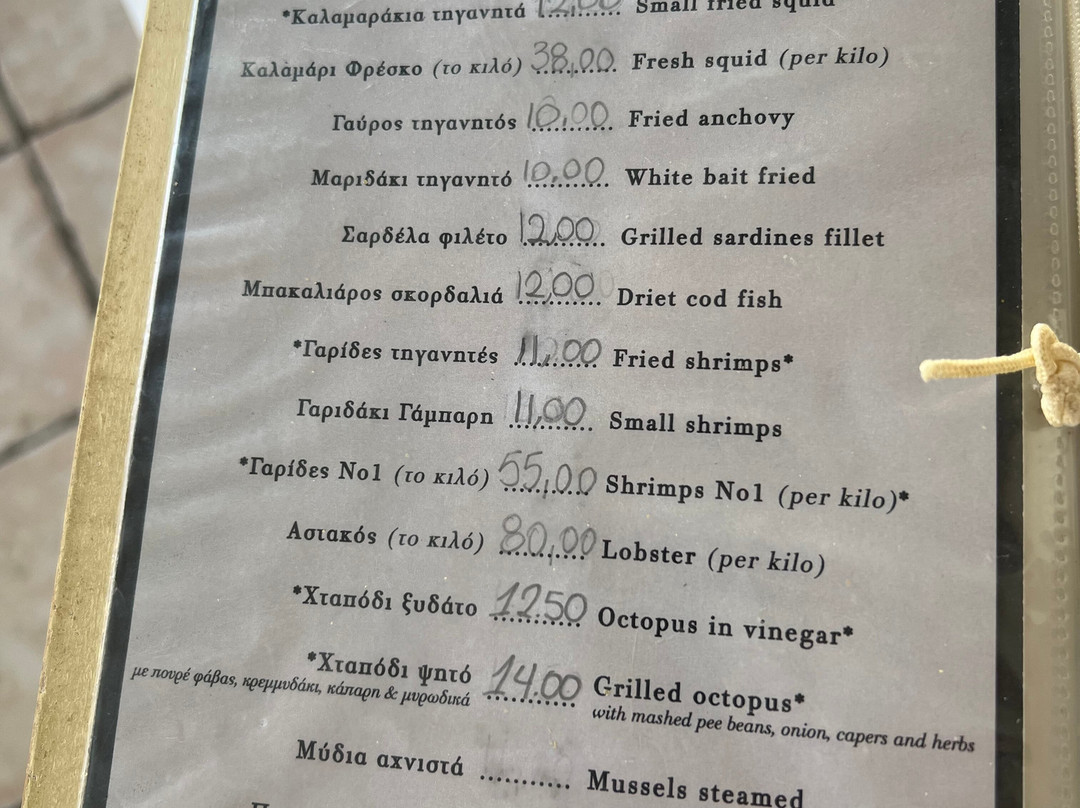 *Καλαμαράκια τηγανητά 12,00 Small fried squid
Καλαμάρι Φρέσκο (το κιλό) 38,00 Fresh squid (per kilo)
Γαύρος τηγανητός 10,00 Fried anchovy
Μαριδάκι τηγανητό 10,00 White bait fried
Σαρδέλα φιλέτο 12,00 Grilled sardines fillet
Μπακαλιάρος σκορδαλιά 12,00 Driet cod fish
*Γαρίδες τηγανητές 11,00 Fried shrimps*
Γαριδάκι Γάμπαρη 11,00 Small shrimps
*Γαρίδες Νο1 (το κιλό) 55,00 Shrimps No1 (per kilo)*
Αστακός (το κιλό) 80,00 Lobster (per kilo)
*Χταπόδι ξυδάτο 12.50 Octopus in vinegar*
*Χταπόδι ψητό 14.00 Grilled octopus*
με πουρέ φάβας, κρεμμυδάκι, κάπαρη & μυρωδικά with mashed pee beans, onion, capers and herbs
Μύδια αχνιστά ........... Mussels steamed